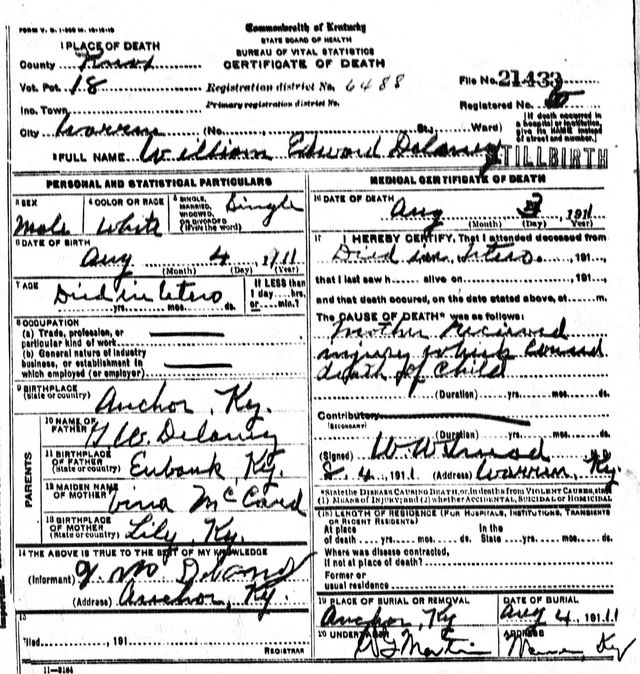 FORM V. S. 1-
Commonwealth of Kentucky
STATE BOARD OF HEALTH
BUREAU OF VITAL STATISTICS
CERTIFICATE OF DEATH
1 PLACE OF DEATH
County Knox
Vot. Pct. 18
Inc. Town
City Warren (No. St.; Ward)
Registration district No. 6488
Primary registration district No.
File No. 21433
Registered No.
[If death occurred in a hospital or institution, give its NAME instead of street and number.]
2 FULL NAME William Edward Delaney
STILLBIRTH
PERSONAL AND STATISTICAL PARTICULARS
3 SEX Male
4 COLOR OR RACE White
5 SINGLE, MARRIED, WIDOWED OR DIVORCED (Write the word) Single
6 DATE OF BIRTH
Aug 4, 1911
(Month) (Day) (Year)
7 AGE
Died in Utero
yrs. mos. ds.
If LESS than 1 day hrs. or min.?
8 OCCUPATION
(a) Trade, profession, or particular kind of work
(b) General nature of industry business, or establishment in which employed (or employer)
9 BIRTHPLACE
(State or country) Anchor, Ky.
PARENTS
10 NAME OF FATHER W. Delaney
11 BIRTHPLACE OF FATHER
(State or country) Eubank, Ky.
12 MAIDEN NAME OF MOTHER
13 BIRTHPLACE OF MOTHER
(State or country) Lily, Ky.
14 THE ABOVE IS TRUE TO THE BEST OF MY KNOWLEDGE
(Informant)
(Address) Anchor, Ky.
15
Filed 191
REGISTRAR
11-3184
MEDICAL CERTIFICATE OF DEATH
16 DATE OF DEATH
Aug 3 1911
(Month) (Day) (Year)
17 I HEREBY CERTIFY, That I attended deceased from
Died in Utero. 191
that I last saw h alive on 191
and that death occured, on the date stated above, at m.
The CAUSE OF DEATH* was as follows:
Mother Received
injury which caused
death of Child
(Duration) yrs. mos. ds.
Contributory
(SECONDARY)
(Duration) yrs. mos. ds.
(Signed) W. W.
8. 4. 1911 (Address) Warren, Ky
*State the DISEASE CAUSING DEATH, or, in deaths from VIOLENT CAUSES, state (1) MEANS OF INJURY; and (2) whether ACCIDENTAL, SUICIDAL or HOMICIDAL.
18 LENGTH OF RESIDENCE (FOR HOSPITALS, INSTITUTIONS, TRANSIENTS OR RECENT RESIDENTS)
At place of death yrs. mos. ds. In the State yrs. mos. ds.
Where was disease contracted, if not at place of death?
Former or usual residence
19 PLACE OF BURIAL OR REMOVAL
Anchor, Ky
DATE OF BURIAL
Aug 4, 1911
20 UNDERTAKER
Martin
ADDRESS
Ky